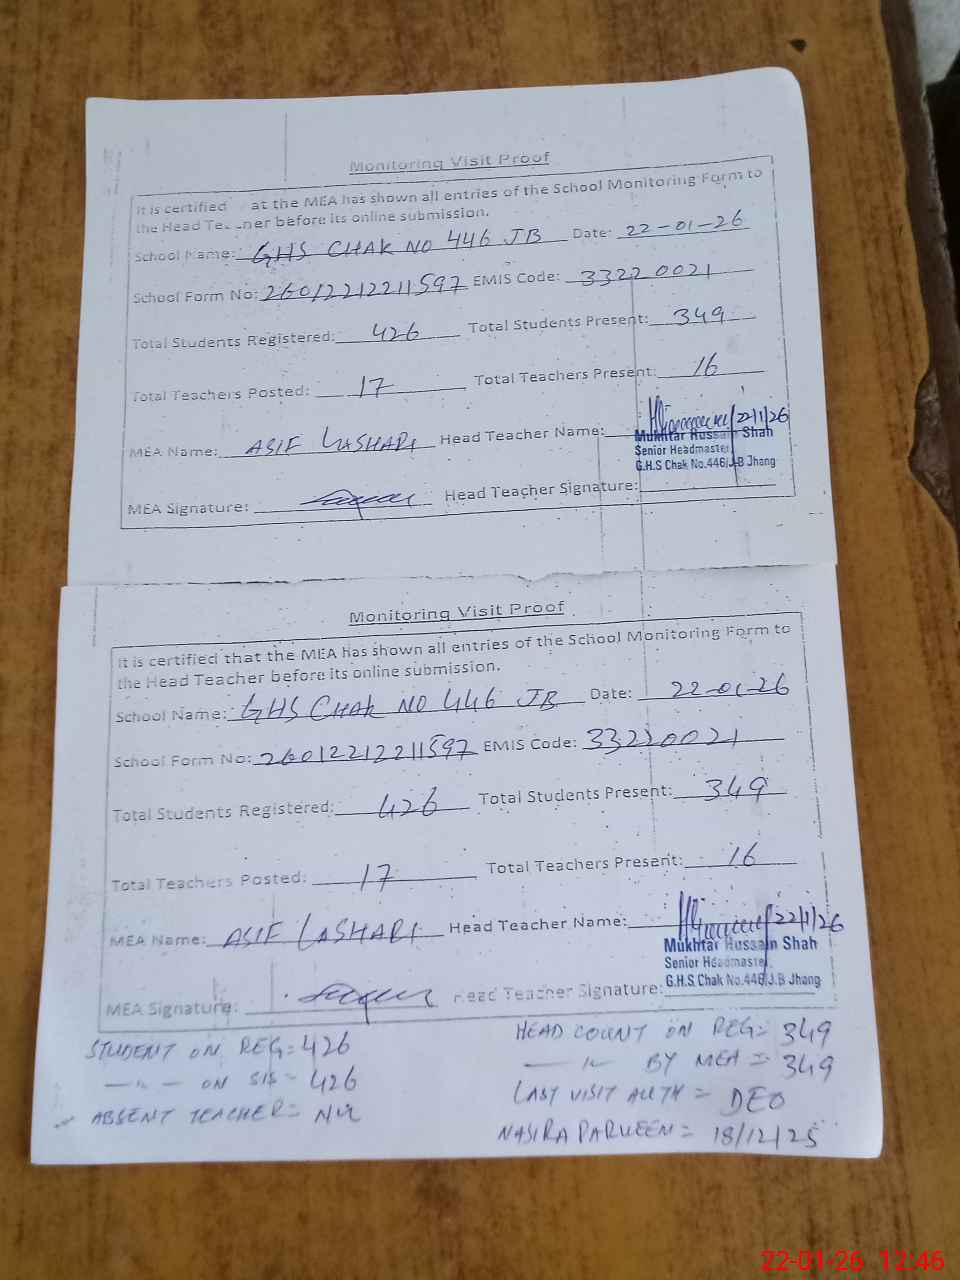 Monitoring Visit Proof
It is certified at the MEA has shown all entries of the School Monitoring Form to
the Head Tea ner before its online submission.
School Name: GHS CHAK NO 446 JB Date: 22-01-26
School Form No: 26012212211597 EMIS Code: 33220021
Total Students Registered: 426 Total Students Present: 349
Total Teachers Posted: 17 Total Teachers Present: 16
MEA Name: ASIF LASHARI Head Teacher Name: 22/1/26
Mukhtar Hussain Shah
Senior Headmaster
G.H.S Chak No.446/J.B Jhang
MEA Signature: Head Teacher Signature:
Monitoring Visit Proof
It is certified that the MEA has shown all entries of the School Monitoring Form to
the Head Teacher before its online submission.
School Name: GHS CHAK NO 446 JB Date: 22-01-26
School Form No: 26012212211597 EMIS Code: 33220021
Total Students Registered: 426 Total Students Present: 349
Total Teachers Posted: 17 Total Teachers Present: 16
MEA Name: ASIF LASHARI Head Teacher Name: 22/1/26
Mukhtar Hussain Shah
Senior Headmaster
G.H.S. Chak No.446/J.B Jhang
MEA Signature: Head Teacher Signature:
STUDENT ON REG = 426
—〃— ON SIS = 426
ABSENT TEACHER = NIL
HEAD COUNT ON REG = 349
—〃— BY MEA = 349
LAST VISIT AUTH = DEO
NASIRA PARVEEN = 18/12/25
22-01-26 12:46